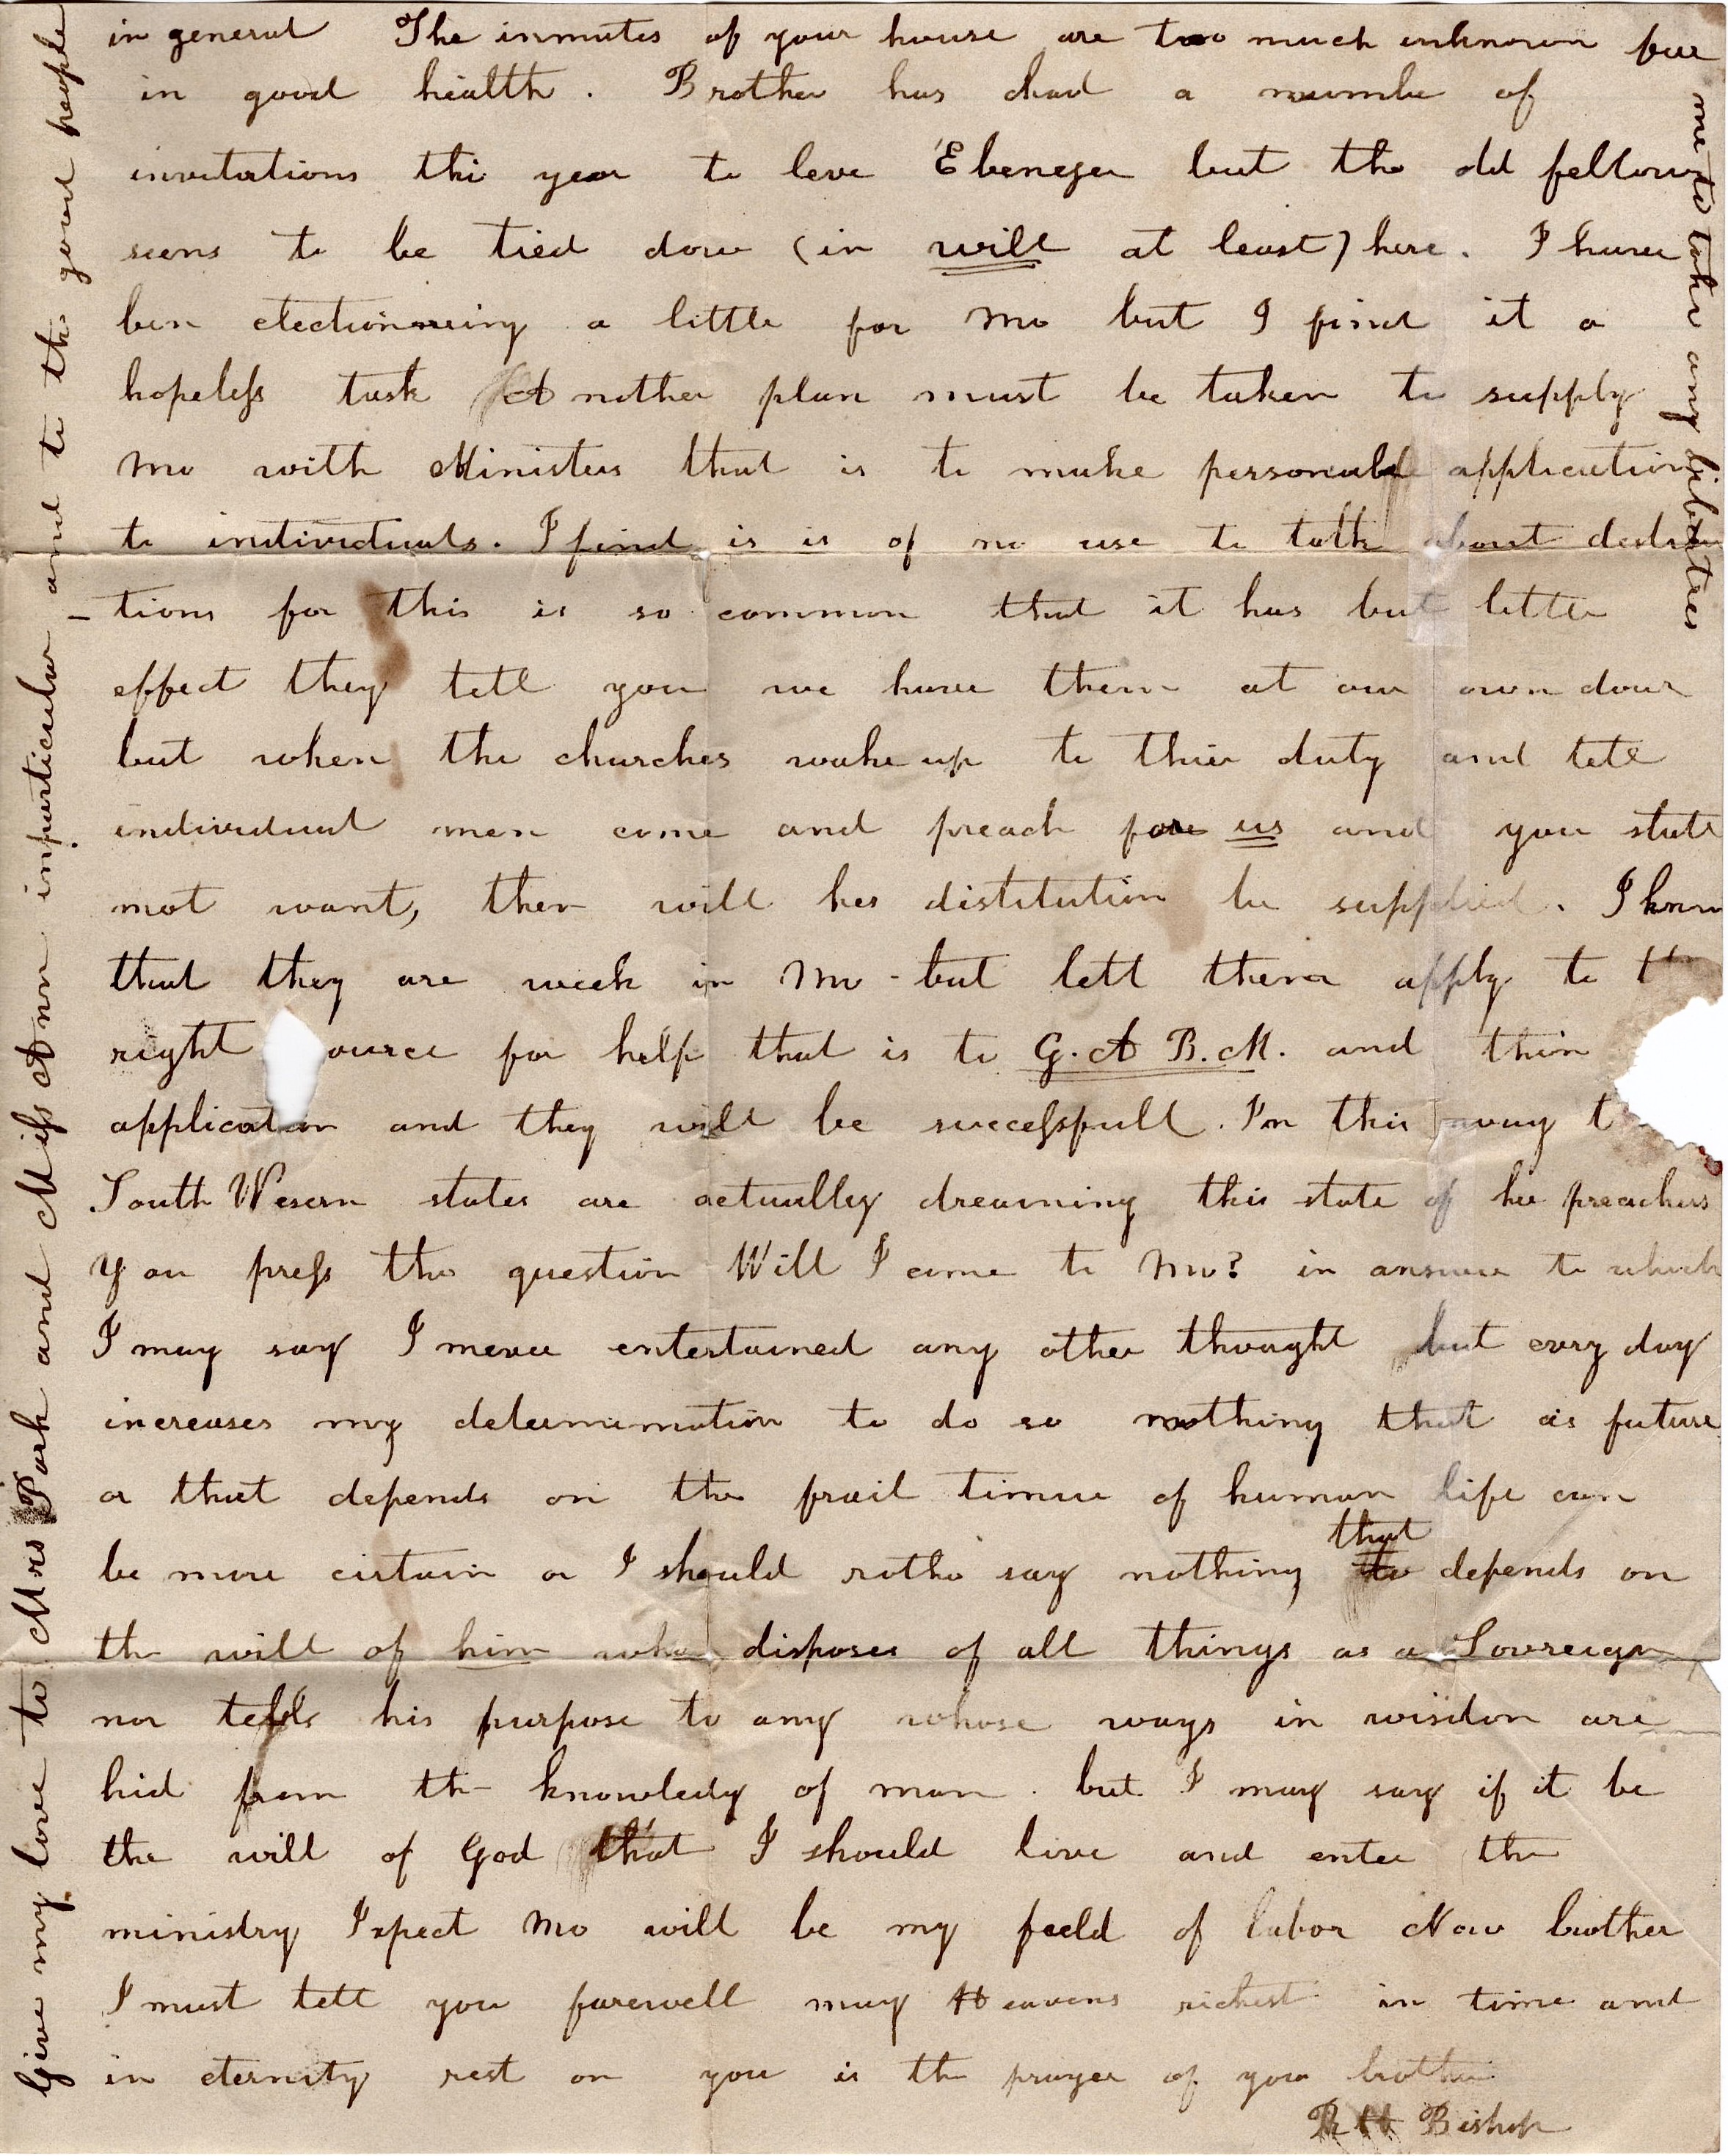 in good health. Brother has had a numbe of
invitations thi year to leve Ebenezer but the old fellow
seems to be tied dow (in will at least) here. I have
ben electionneing a little for Mo but I find it a
hopeless task Another plan must be taken to supply
Mo with Ministers that is to make personal application
to individuals. I find is is of no use to talk about destitu
tions for this is so common that it has but little
effect they tell you we have them at our own dour
but when the churches wake up to thier duty and tell
individual men come and preach for us and you shall
not want, then will her distitution be supplied. I know
that they are week in Mo - but lett them apply to the
right ource for help that is to G. A B. M. and thier
application and they will be successfull. In this way t
South Wesern states are actually dreaining this state of her preachers
You press the question Will I come to Mo? in answer to which
I may say I never entertained any other thought but every day
increases my determination to do so nothing that is future
or that depends on the frail tinue of human life can
be more cirtain or I should rathe say nothing that depends on
the will of him who disposes of all things as a Sovreign
nor tells his purpose to any whose ways in wisdon are
hid from th knowledg of man. but I may say if it be
the will of God that I should live and enter the
ministry I xpect Mo will be my feeld of labor Now brother
I must tell you farewell may Heavens richest in time and
in eternity rest on you is th prayer of your brother
R H Bishop
Give my love to Mrs Park and Miss Ann inparticular - and to the good people
in general The inmates of your house are too much unknown for
me to take any libertres